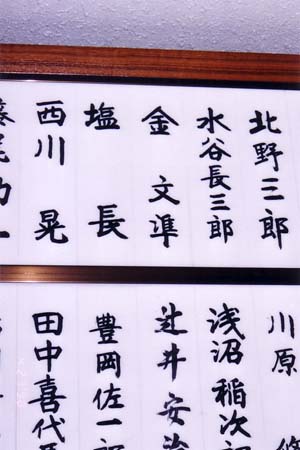 北野三郎
水谷長三郎
金文準
塩長
西川晃
尾
川原
浅沼稲次郎
辻井安治
豊岡佐一郎
田中喜代